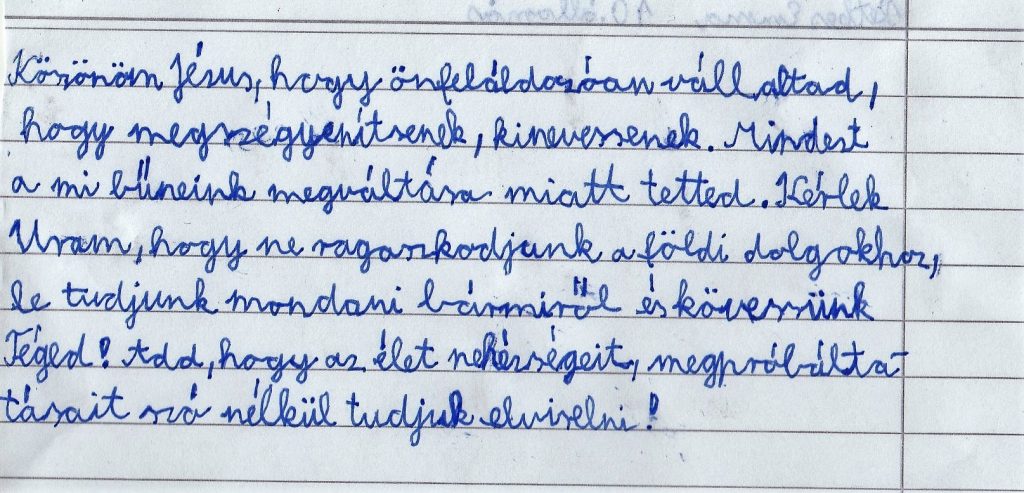 Köszönöm Jézus, hogy önfeláldozóan vállaltad,
hogy megszégyenítsenek, kinevessenek. Mindezt
a mi bűneink megváltása miatt tetted. Kérlek
Uram, hogy ne ragaszkodjunk a földi dolgokhoz,
le tudjunk mondani bármiről és kövessünk
Téged! Add, hogy az élet nehézségeit, megpróbálta-
tásait szó nélkül tudjuk elviselni!